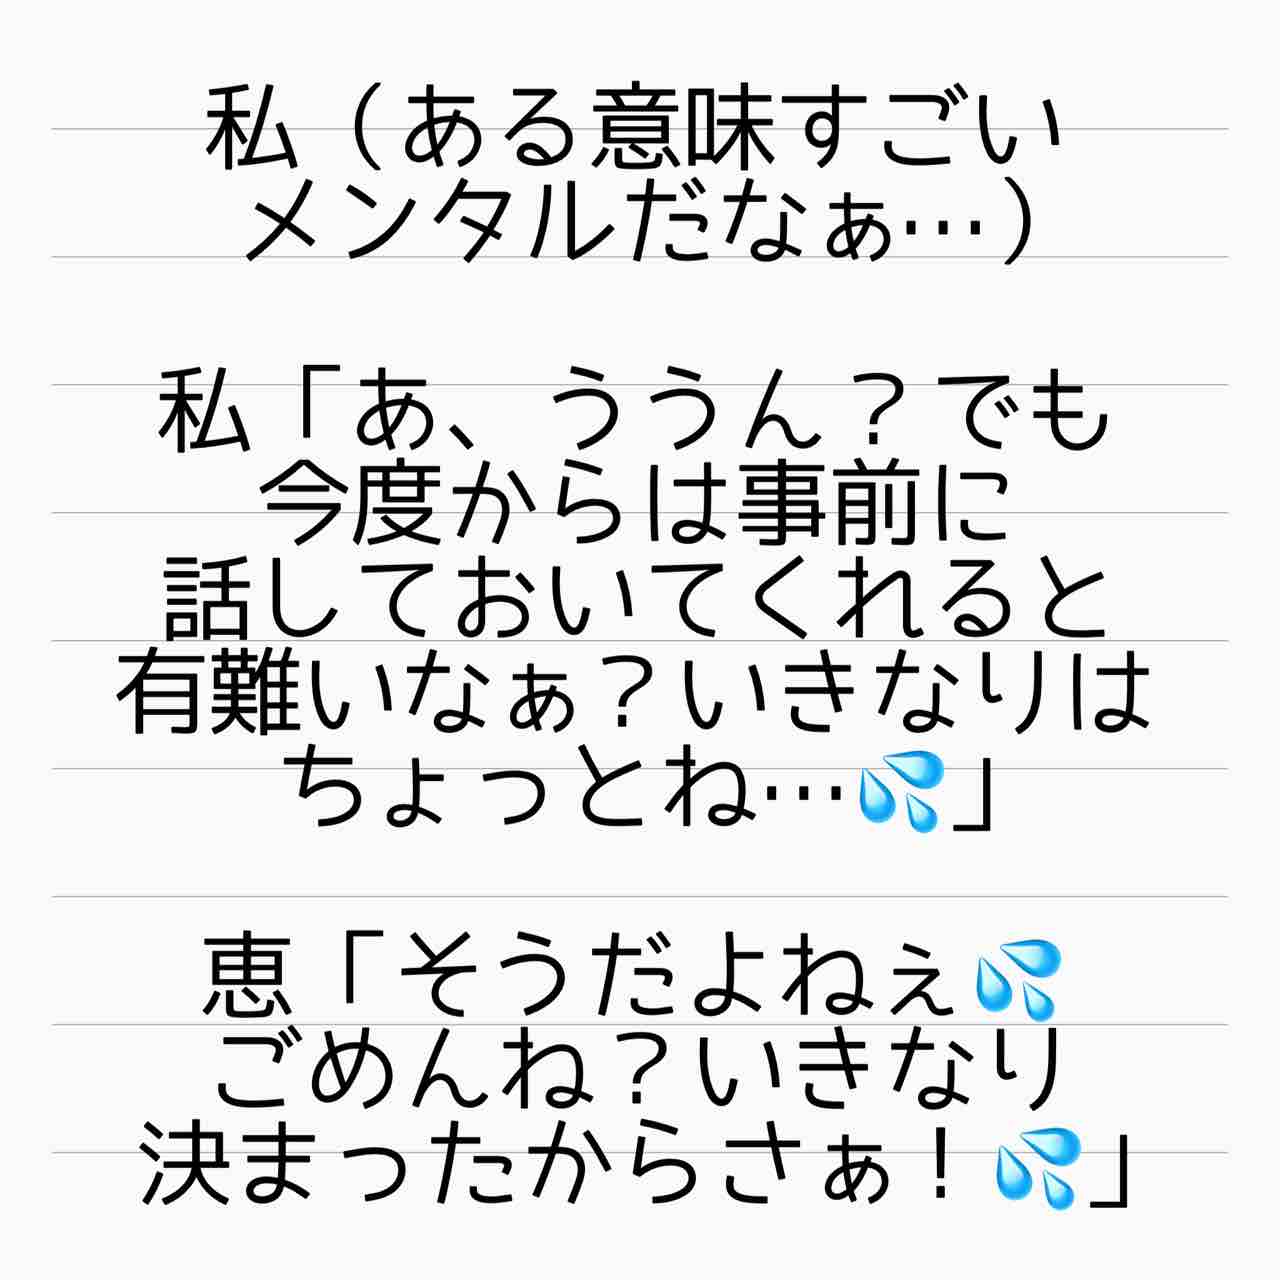 私（ある意味すごい
メンタルだなぁ…）
私「あ、ううん？でも
今度からは事前に
話しておいてくれると
有難いなぁ？いきなりは
ちょっとね…💦」
恵「そうだよねぇ💦
ごめんね？いきなり
決まったからさぁ！💦」